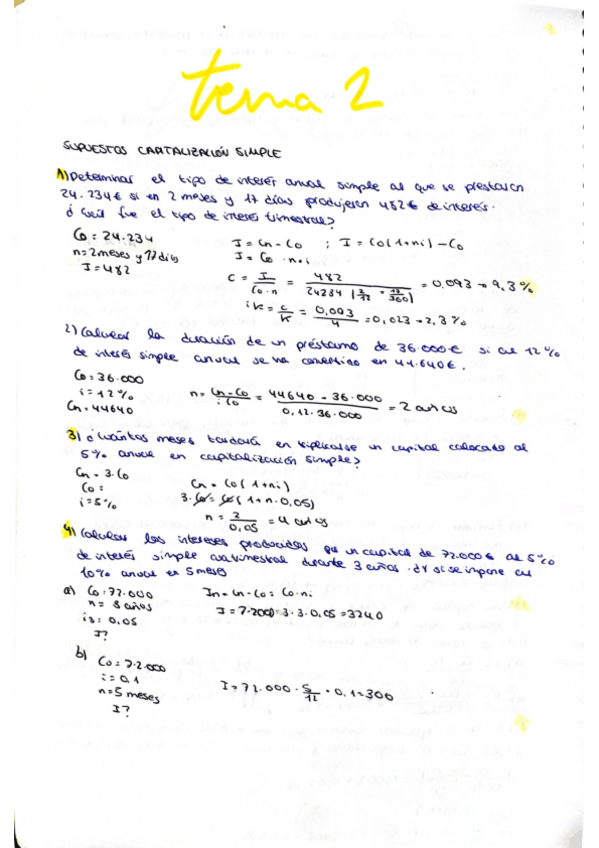 tema 2
SUPUESTOS CAPITALIZACIÓN SIMPLE
1) Determinar el tipo de interés anual simple al que se prestaron
24.234€ si en 2 meses y 17 días produjeron 482€ de interés.
¿ Cuál fue el tipo de interés trimestral?
C0 = 24.234
n = 2 meses y 17 días
I = 482
I = Cn - C0 ; I = C0(1+ni) - C0
I = C0 · n · i
C = I / C0·n = 482 / 24234 (2/12 + 17/360) = 0,093 → 9,3%
iK = c/K = 0,093/4 = 0,023 → 2,3%
2) Calcular la duración de un préstamo de 36.000€ si al 12%
de interés simple anual se ha convertido en 44.640€.
C0 = 36.000
i = 12%
Cn = 44640
n = Cn - C0 / i·C0 = 44640 - 36.000 / 0,12 · 36.000 = 2 años
3) ¿Cuántos meses tardará en triplicarse un capital colocado al
5% anual en capitalización simple?
Cn = 3·C0
C0 =
i = 5%
Cn = C0(1+ni)
3·C0 = C0(1+n·0,05)
n = 2/0,05 = 4 años
4) Calcular los intereses producidos un capital de 72.000€ al 5%
de interés simple durante 3 años si se impone al
10% anual en 5 meses
a) C0 = 72.000
n = 3 años
i3 = 0,05
I?
In = Cn - C0 = C0·ni
I = 7.2000 · 3 · 3 · 0,05 = 3240
b)
C0 = 72.000
i = 0,1
n = 5 meses
I?
I = 72.000 · 5/12 · 0,1 = 300